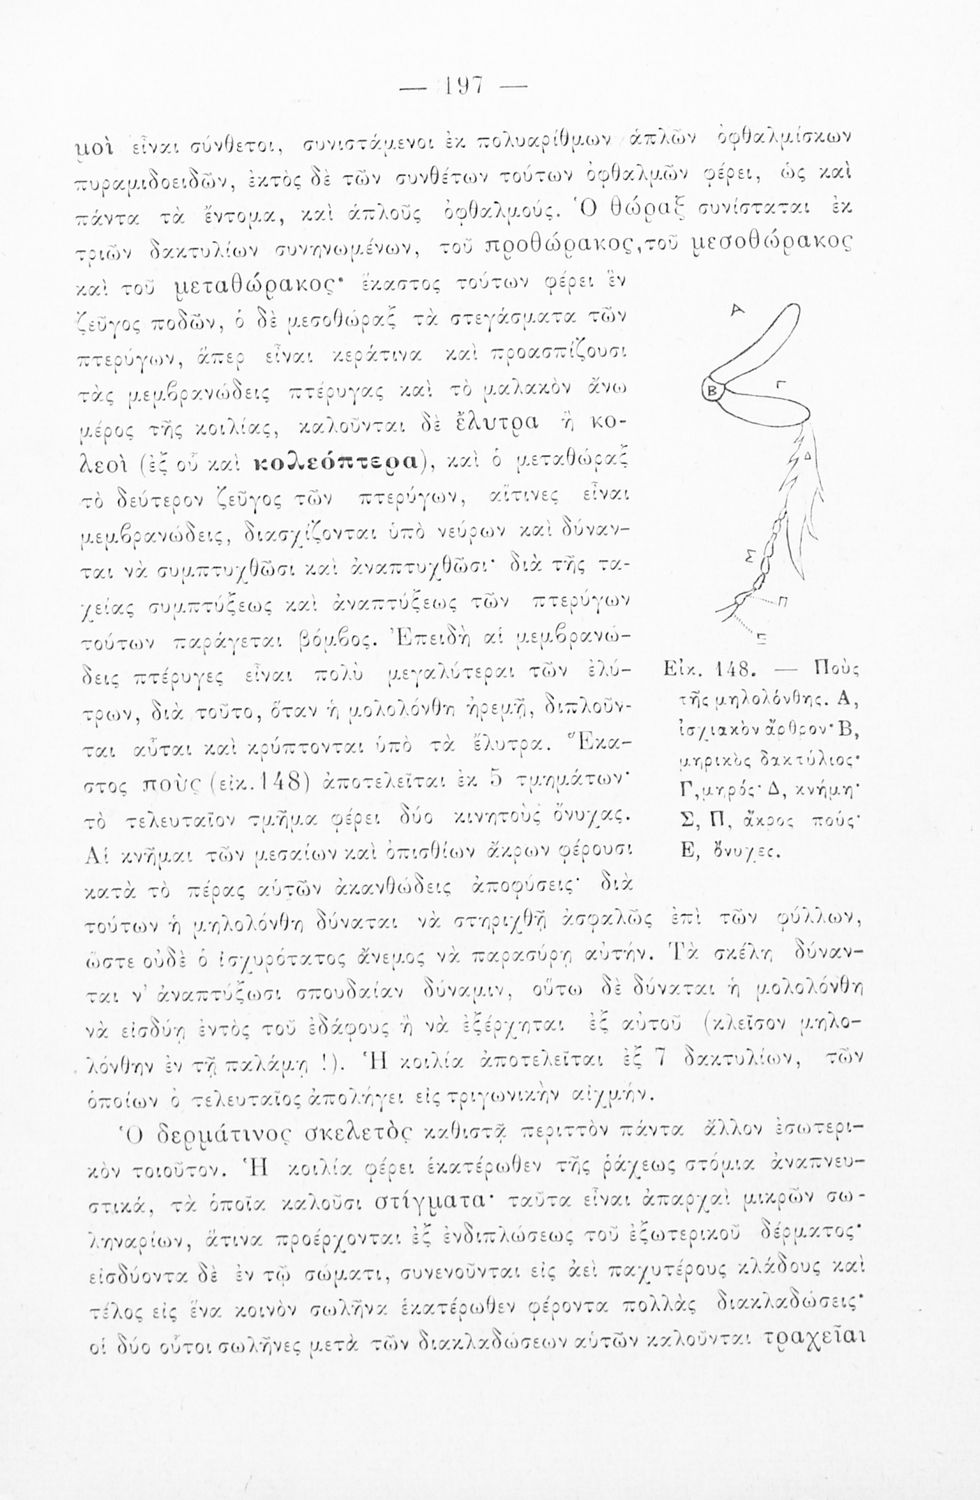 — 197 —
μοὶ εἶναι σύνθετοι, συνιστάμενοι ἐκ πολυαρίθμων ἁπλῶν ὀφθαλμίσκων
πυραμιδοειδῶν, ἐκτὸς δὲ τῶν συνθέτων τούτων ὀφθαλμῶν φέρει, ὡς καὶ
πάντα τὰ ἔντομα, καὶ ἁπλοῦς ὀφθαλμούς. Ὁ θώραξ συνίσταται ἐκ
τριῶν δακτυλίων συνηνωμένων, τοῦ προθώρακος, τοῦ μεσοθώρακος
καὶ τοῦ μεταθώρακος· ἕκαστος τούτων φέρει ἓν
ζεῦγος ποδῶν, ὁ δὲ μεσοθώραξ τὰ στεγάσματα τῶν
πτερύγων, ἅπερ εἶναι κεράτινα καὶ προασπίζουσι
τὰς μεμβρανώδεις πτέρυγας καὶ τὸ μαλακὸν ἄνω
μέρος τῆς κοιλίας, καλοῦνται δὲ ἔλυτρα ἢ κο-
λεοὶ (ἐξ οὗ καὶ κολεόπτερα), καὶ ὁ μεταθώραξ
τὸ δεύτερον ζεῦγος τῶν πτερύγων, αἵτινες εἶναι
μεμβρανώδεις, διασχίζονται ὑπὸ νεύρων καὶ δύναν-
ται νὰ συμπτυχθῶσι καὶ ἀναπτυχθῶσι· διὰ τῆς τα-
χείας συμπτύξεως καὶ ἀναπτύξεως τῶν πτερύγων
τούτων παράγεται βόμβος. Ἐπειδὴ αἱ μεμβρανώ-
δεις πτέρυγες εἶναι πολὺ μεγαλύτεραι τῶν ἐλύ-
τρων, διὰ τοῦτο, ὅταν ἡ μολολόνθη ἠρεμῇ, διπλοῦν-
ται αὗται καὶ κρύπτονται ὑπὸ τὰ ἔλυτρα. Ἕκα-
στος ποὺς (εἰκ. 148) ἀποτελεῖται ἐκ 5 τμημάτων·
τὸ τελευταῖον τμῆμα φέρει δύο κινητοὺς ὄνυχας.
Αἱ κνῆμαι τῶν μεσαίων καὶ ὀπισθίων ἄκρων φέρουσι
κατὰ τὸ πέρας αὐτῶν ἀκανθώδεις ἀποφύσεις· διὰ
τούτων ἡ μηλολόνθη δύναται νὰ στηριχθῇ ἀσφαλῶς ἐπὶ τῶν φύλλων,
ὥστε οὐδὲ ὁ ἰσχυρότατος ἄνεμος νὰ παρασύρῃ αὐτήν. Τὰ σκέλη δύναν-
ται ν' ἀναπτύξωσι σπουδαίαν δύναμιν, οὕτω δὲ δύναται ἡ μολολόνθη
νὰ εἰσδύῃ ἐντὸς τοῦ ἐδάφους ἢ νὰ ἐξέρχηται ἐξ αὐτοῦ (κλεῖσον μηλο-
λόνθην ἐν τῇ παλάμῃ !). Ἡ κοιλία ἀποτελεῖται ἐξ 7 δακτυλίων, τῶν
ὁποίων ὁ τελευταῖος ἀπολήγει εἰς τριγωνικὴν αἰχμήν.
Ὁ δερμάτινος σκελετὸς καθιστᾷ περιττὸν πάντα ἄλλον ἐσωτερι-
κὸν τοιοῦτον. Ἡ κοιλία φέρει ἑκατέρωθεν τῆς ῥάχεως στόμια ἀναπνευ-
στικά, τὰ ὁποῖα καλοῦσι στίγματα· ταῦτα εἶναι ἀπαρχαὶ μικρῶν σω-
ληναρίων, ἅτινα προέρχονται ἐξ ἐνδιπλώσεως τοῦ ἐξωτερικοῦ δέρματος·
εἰσδύοντα δὲ ἐν τῷ σώματι, συνενοῦνται εἰς ἀεὶ παχυτέρους κλάδους καὶ
τέλος εἰς ἕνα κοινὸν σωλῆνα ἑκατέρωθεν φέροντα πολλὰς διακλαδώσεις·
οἱ δύο οὗτοι σωλῆνες μετὰ τῶν διακλαδώσεων αὐτῶν καλοῦνται τραχεῖαι
Α
Β
Γ
Δ
Σ
Π
Ε
Εἰκ. 148. — Ποὺς
τῆς μηλολόνθης. Α,
ἰσχιακὸν ἄρθρον· Β,
μηρικὸς δακτύλιος·
Γ, μηρός· Δ, κνήμη·
Σ, Π, ἄκρος πούς·
Ε, ὄνυχες.